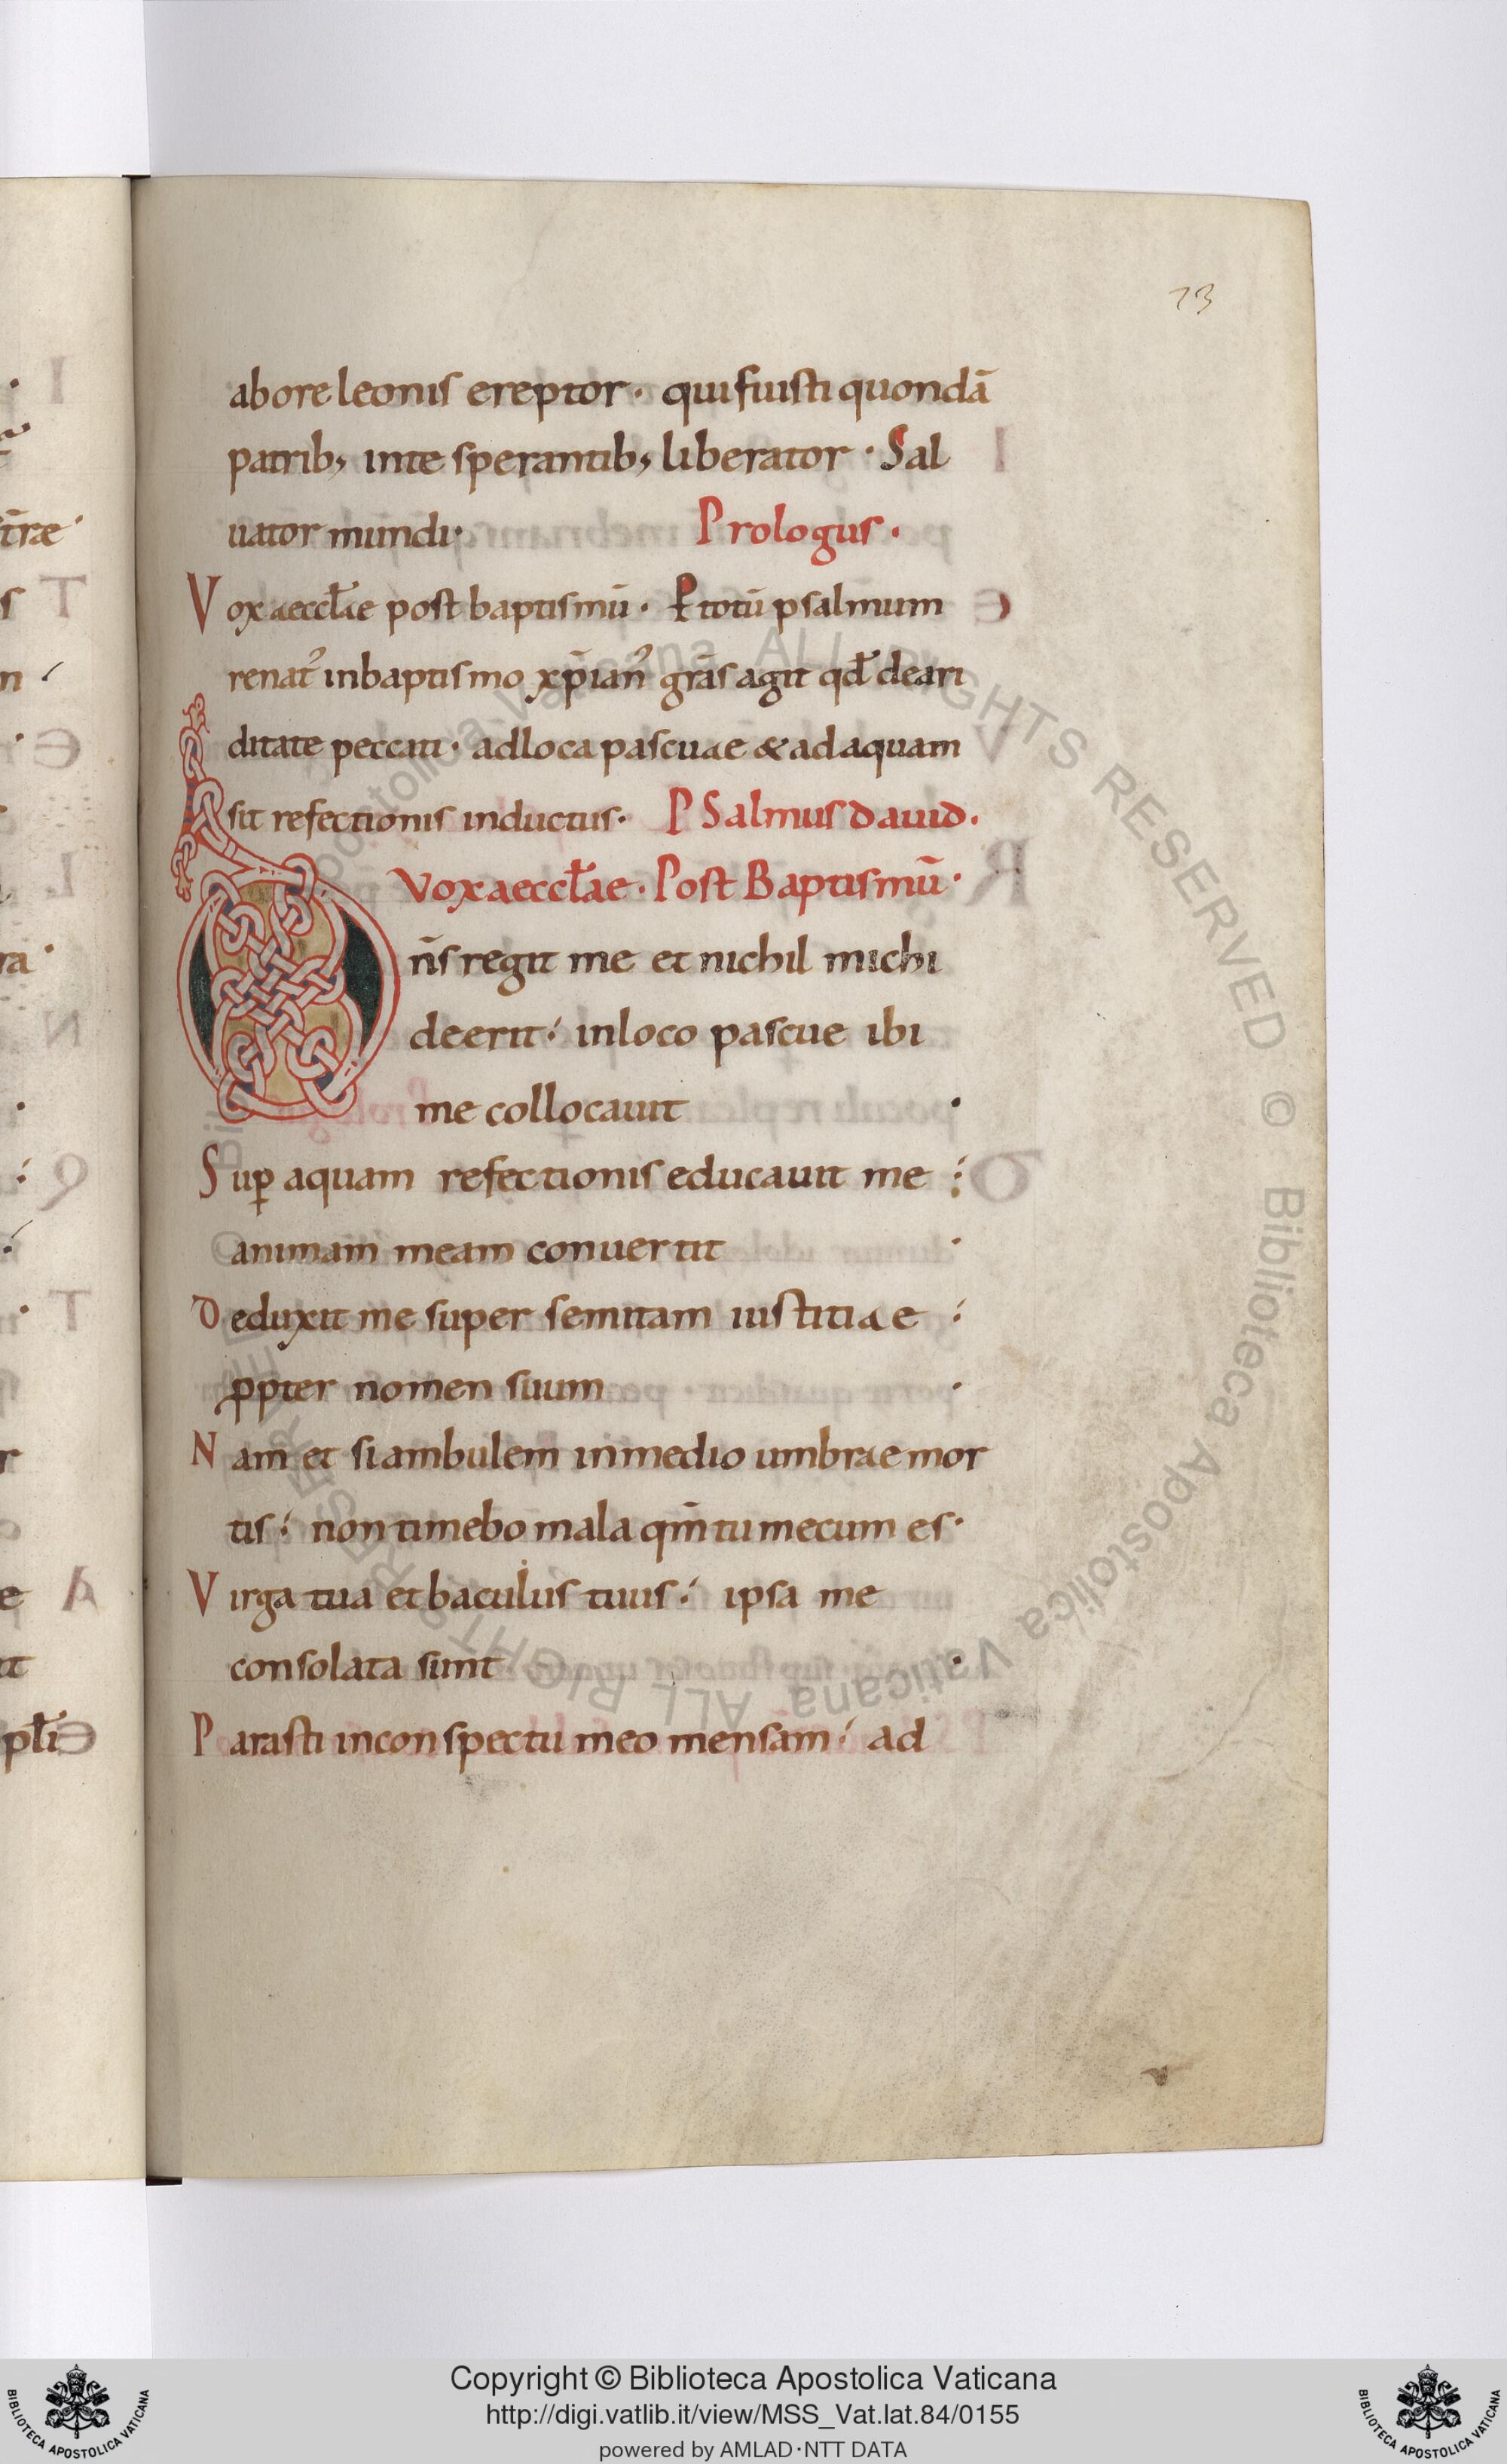 73
abore leonis ereptor · qui fuisti quondā
patrib; inte sperantib; liberator · Sal
uator mundi· Prologus ·
Vox aeccl̄ae post baptismū · Ꝑ totū psalmum
renat᾽ inbaptismo xp̄ian᾽ grās agit qd̄ deari
ditate peccati · adloca pascuae & adaquam
sit refectionis inductus· PSalmus dauid.
Vox aeccl̄ae · Post Baptismū·
D n̄s regit me et nichil michi
deerit: inloco pascue ibi
me collocauit ·
Suꝑ aquam refectionis educauit me :
animam meam conuertit ·
Deduxit me super semitam iustitiae :
ꝓpter nomen suum ·
Nam et siambulem inmedio umbrae mor
tis: non timebo mala qm̄ tu mecum es·
Virga tua et baculus tuus: ipsa me
consolata sunt ·
Parasti inconspectu meo mensam: ad
Copyright © Biblioteca Apostolica Vaticana
http://digi.vatlib.it/view/MSS_Vat.lat.84/0155
powered by AMLAD·NTT DATA
BIBLIOTECA APOSTOLICA VATICANA
BIBLIOTECA APOSTOLICA VATICANA